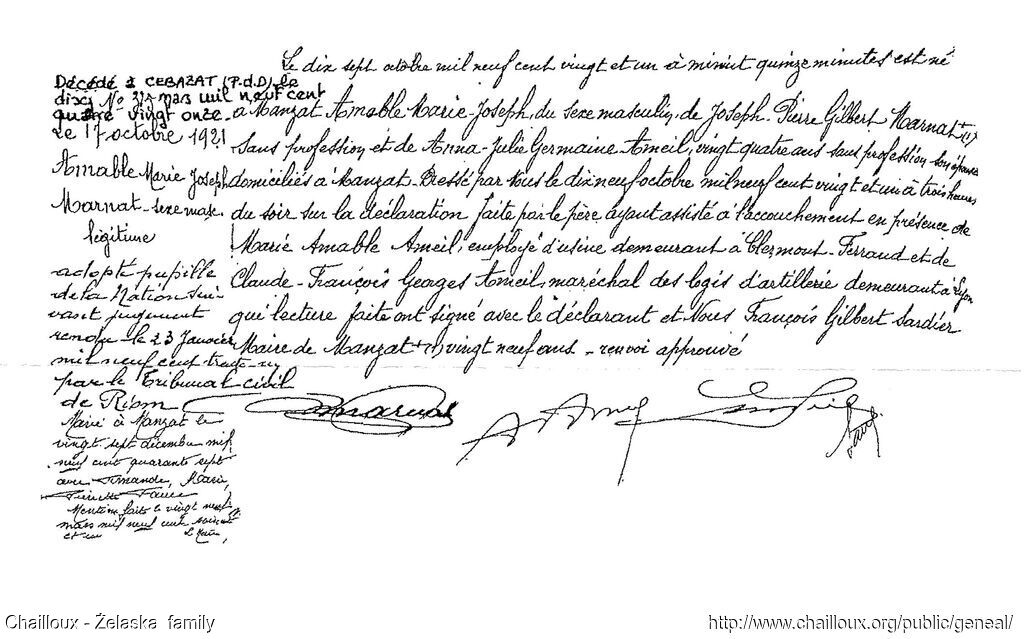 Le dix sept octobre mil neuf cent vingt et un à minuit quinze minutes est né
à Manzat Amable Marie-Joseph, du sexe masculin, de Joseph-Pierre Gilbert Marnat +(1)
sans profession et de Anna-Julie Germaine Ameil, vingt quatre ans sans profession son épouse
domiciliés à Manzat. Dressé par nous le dix neuf octobre mil neuf cent vingt et un à trois heures
du soir sur la déclaration faite par le père, ayant assisté à l'accouchement en présence de
Marie Amable Ameil, employé d'usine demeurant à Clermont-Ferrand et de
Claude-François Georges Ameil, maréchal des logis d'artillerie demeurant à Lyon
qui lecture faite ont signé avec le déclarant et Nous François Gilbert Sardier
Maire de Manzat +(1) vingt neuf ans - renvoi approuvé
Décédé à CEBAZAT (P.d.D) le
dix N° mars mil neuf cent
quatre vingt onze
Le 17 octobre 1921
Amable Marie Joseph
Marnat - sexe masc.
légitime
adopté pupille
de la Nation sui-
vant jugement
rendu le 23 Janvier
mil neuf cent trente-
par le Tribunal civil
de Riom
Marié à Manzat le
vingt sept décembre mil
neuf cent quarante sept
avec Armande, Marie,
Faure
Mention faite le vingt neuf
mars mil neuf cent soixante
et un Le Maire,
Marnat
A Ameil
Chailloux - Żelaska family
http://www.chailloux.org/public/geneal/